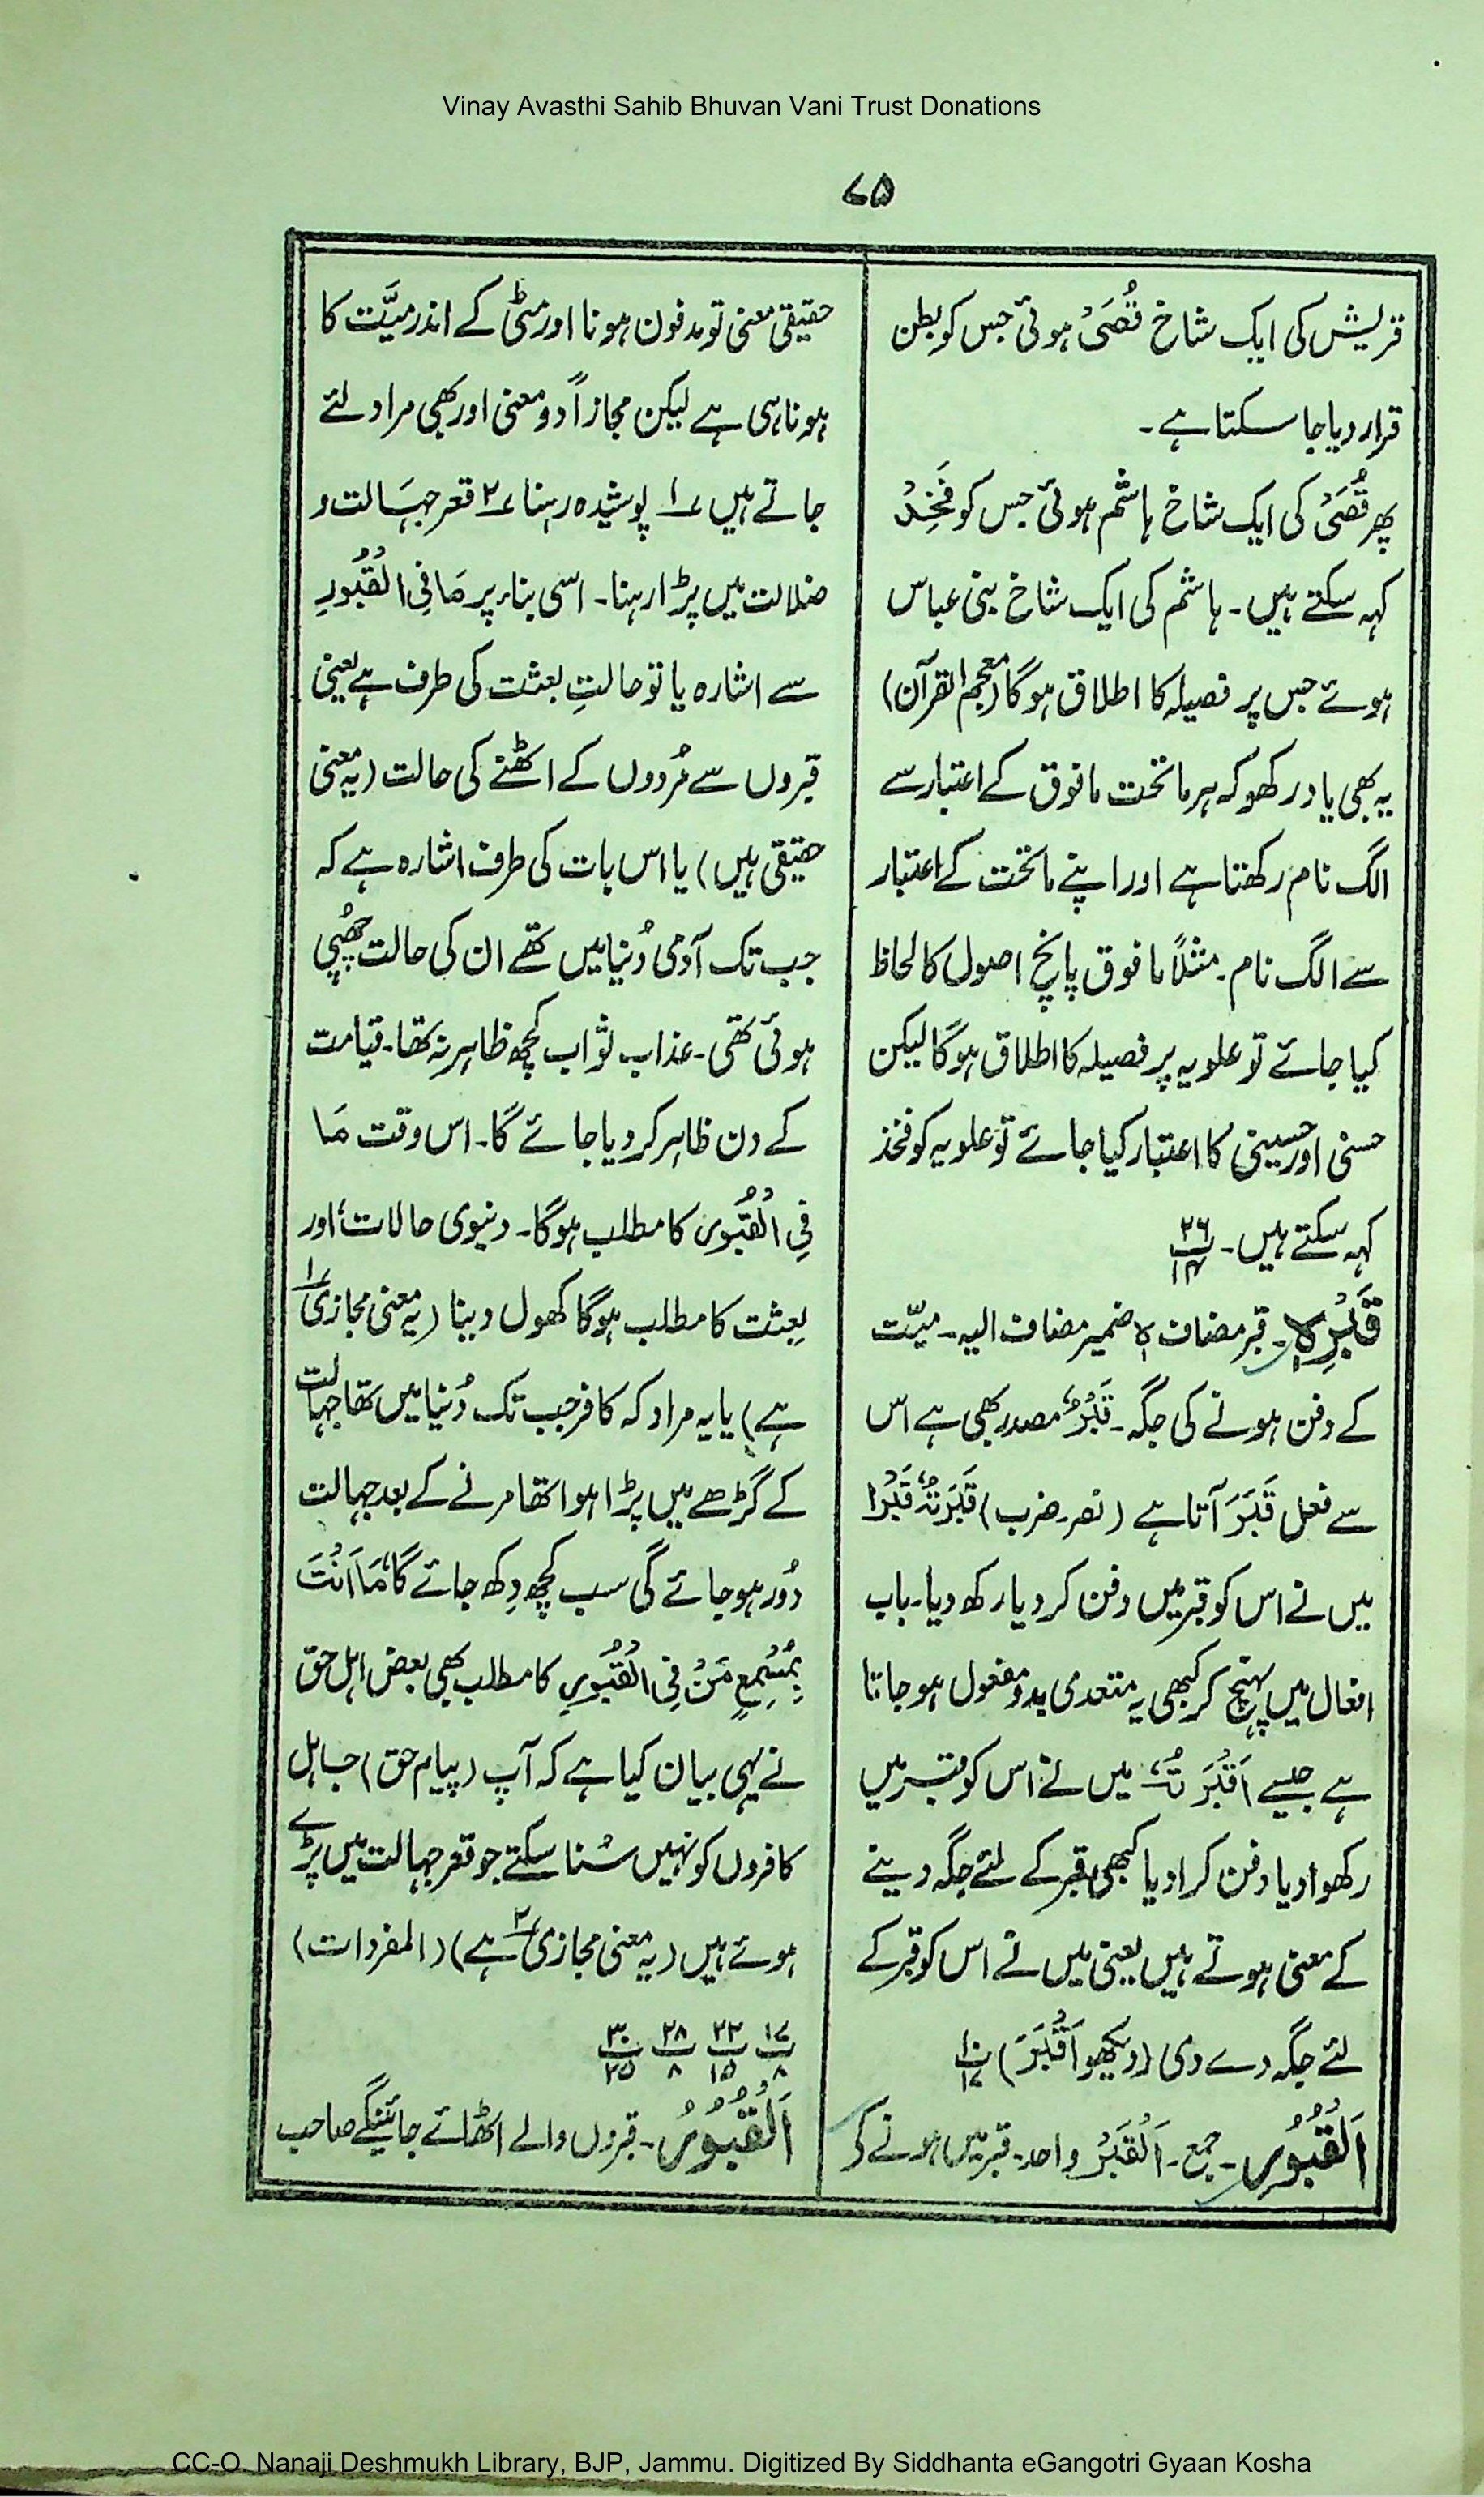 Vinay Avasthi Sahib Bhuvan Vani Trust Donations
۷۵
قریش کی ایک شاخ قُصَیْ ہوئی جس کو بطن
قرار دیا جا سکتا ہے۔
پھر قُصَیْ کی ایک شاخ ہاشم ہوئی جس کو فَخِذْ
کہہ سکتے ہیں۔ ہاشم کی ایک شاخ بنی عباس
ہوئے جس پر فصیلہ کا اطلاق ہوگا (معجم القرآن)
یہ بھی یاد رکھو کہ ہر ماتحت مافوق کے اعتبار سے
الگ نام رکھتا ہے اور اپنے ماتحت کے اعتبار
سے الگ نام۔ مثلاً مافوق پانچ اصول کا لحاظ
کیا جائے تو علویہ پر فصیلہ کا اطلاق ہوگا لیکن
حسنی اور حسینی کا اعتبار کیا جائے تو علویہ کو فخذ
کہہ سکتے ہیں۔ ۲۶ پ ۱۴
قَبْرِہٖ۔ قبر مضاف ہٖ ضمیر مضاف الیہ۔ میّت
کے دفن ہونے کی جگہ۔ قَبْرٌ مصدر بھی ہے اس
سے فعل قَبَرَ آتا ہے (نصر۔ ضرب) قَبَرْتُہٗ قَبْرًا
میں نے اس کو قبر میں دفن کر دیا رکھ دیا۔ باب
افعال میں پہنچ کر کبھی یہ متعدی بدو مفعول ہو جاتا
ہے جیسے اَقْبَرْتُہٗ میں نے اس کو قبر میں
رکھوا دیا دفن کرا دیا کبھی قبر کے لئے جگہ دینے
کے معنی ہوتے ہیں یعنی میں نے اس کو قبر کے
لئے جگہ دے دی (دیکھو اَقْبَرَ) ۱۰ پ ۱۷
اَلْقُبُوْرِ۔ جمع۔ اَلْقَبْرُ واحد۔ قبر میں ہونے کے
حقیقی معنی تو مدفون ہونا اور مٹی کے اندر میَّت کا
ہونا ہی ہے لیکن مجازاً دو معنی اور بھی مراد لئے
جاتے ہیں ؎۱ پوشیدہ رہنا ؎۲ قعر جہَالت و
ضلالت میں پڑا رہنا۔ اسی بناء پر مَا فِی الْقُبُوْرِ
سے اشارہ یا تو حالتِ بعثت کی طرف ہے یعنی
قبروں سے مُردوں کے اٹھنے کی حالت (یہ معنی
حقیقی ہیں) یا اس بات کی طرف اشارہ ہے کہ
جب تک آدمی دُنیا میں تھے ان کی حالت چھُپی
ہوئی تھی۔ عذاب ثواب کچھ ظاہر نہ تھا۔ قیامت
کے دن ظاہر کر دیا جائے گا۔ اس وقت مَا
فِی الْقُبُوْرِ کا مطلب ہوگا۔ دنیوی حالات، اور
بعثت کا مطلب ہوگا کھول دینا (یہ معنی مجازی ؎۱
ہے) یا یہ مراد کہ کافر جب تک دُنیا میں تھا جہالت
کے گڑھے میں پڑا ہوا تھا مرنے کے بعد جہالت
دُور ہو جائے گی سب کچھ دِکھ جائے گا، مَا اَنْتَ
بِمُسْمِعٍ مَّنْ فِی الْقُبُوْرِ کا مطلب بھی بعض اہل حق
نے یہی بیان کیا ہے کہ آپ (پیام حق) جاہل
کافروں کو نہیں سُنا سکتے جو قعر جہالت میں پڑے
ہوئے ہیں (یہ معنی مجازی ؎۲ ہے) (المفردات)
۱۷ پ ۸ ۲۲ پ ۱۵ ۲۸ پ ۸ ۳۰ پ ۲۵
اَلْقُبُوْرُ۔ قبروں والے اٹھائے جائینگے صاحب
CC-O. Nanaji Deshmukh Library, BJP, Jammu. Digitized By Siddhanta eGangotri Gyaan Kosha